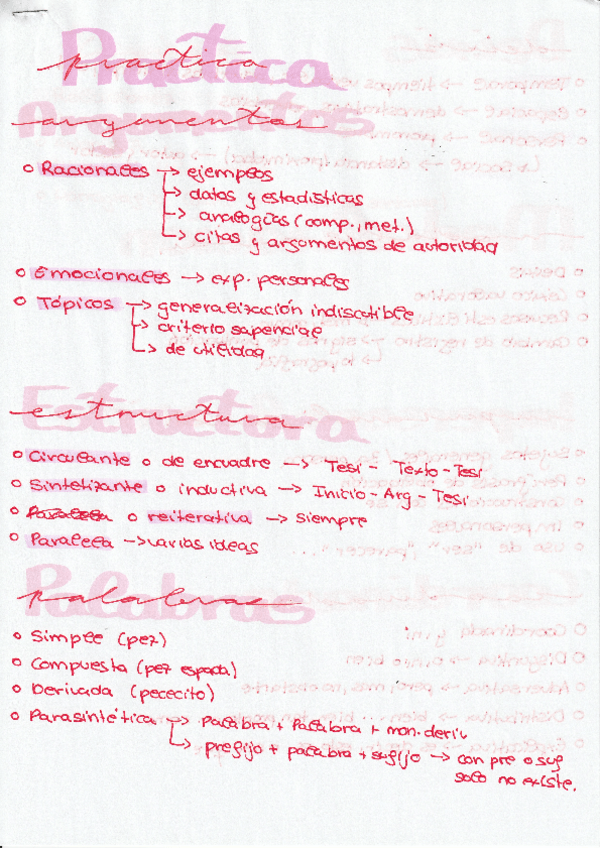 Práctica
Argumentos
o Racionales → ejemplos
→ datos y estadísticas
→ analogías (comp., met.)
→ citas y argumentos de autoridad
o Emocionales → exp. personales
o Tópicos → generalización indiscutible
→ criterio sapencial
→ de utilidad
Estructura
o Circulante o de encuadre → Tesi - Texto - Tesi
o Sintetizante o inductiva → Inicio - Arg - Tesi
o Paralela o reiterativa → siempre
o Paralela → varias ideas
Palabras
o Simple (pez)
o Compuesta (pez espada)
o Derivada (pececito)
o Parasintética → palabra + palabra + mon. deriv
→ prefijo + palabra + sufijo → con pre o suf
solo no existe.